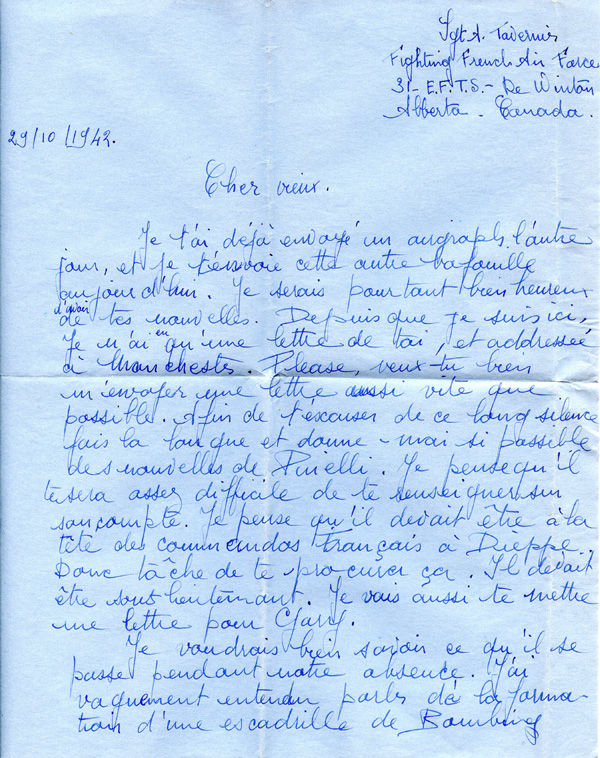 Sgt A. Tavernier
Fighting French Air Force
31- E.F.T.S. - De Winton
Alberta. Canada.
29/10/1942.
Cher vieux.
Je t'ai déjà envoyé un airgraph l'autre
jour, et je t'envoie cette autre bafouille
aujourd'hui. Je serais pourtant bien heureux
d'avoir
de tes nouvelles. Depuis que je suis ici,
Je n'ai eu qu'une lettre de toi, et addressée
à Manchester. Please, veux-tu bien
m'envoyer une lettre aussi vite que
possible. Afin de t'excuser de ce long silence
fais la longue et donne-moi si possible
des nouvelles de Pinelli. Je pense qu'il
te sera assez difficile de te renseigner sur
son compte. Je pense qu'il devait être à la
tête des commandos Français à Dieppe.
Donc tâche de te procurer ça. Il devait
être sous lieutenant. Je vais aussi te mettre
une lettre pour
Je voudrais bien savoir ce qu'il se
passe pendant notre absence. J'ai
vaguement entendu parler de la forma-
tion d'une escadrille de Bombing